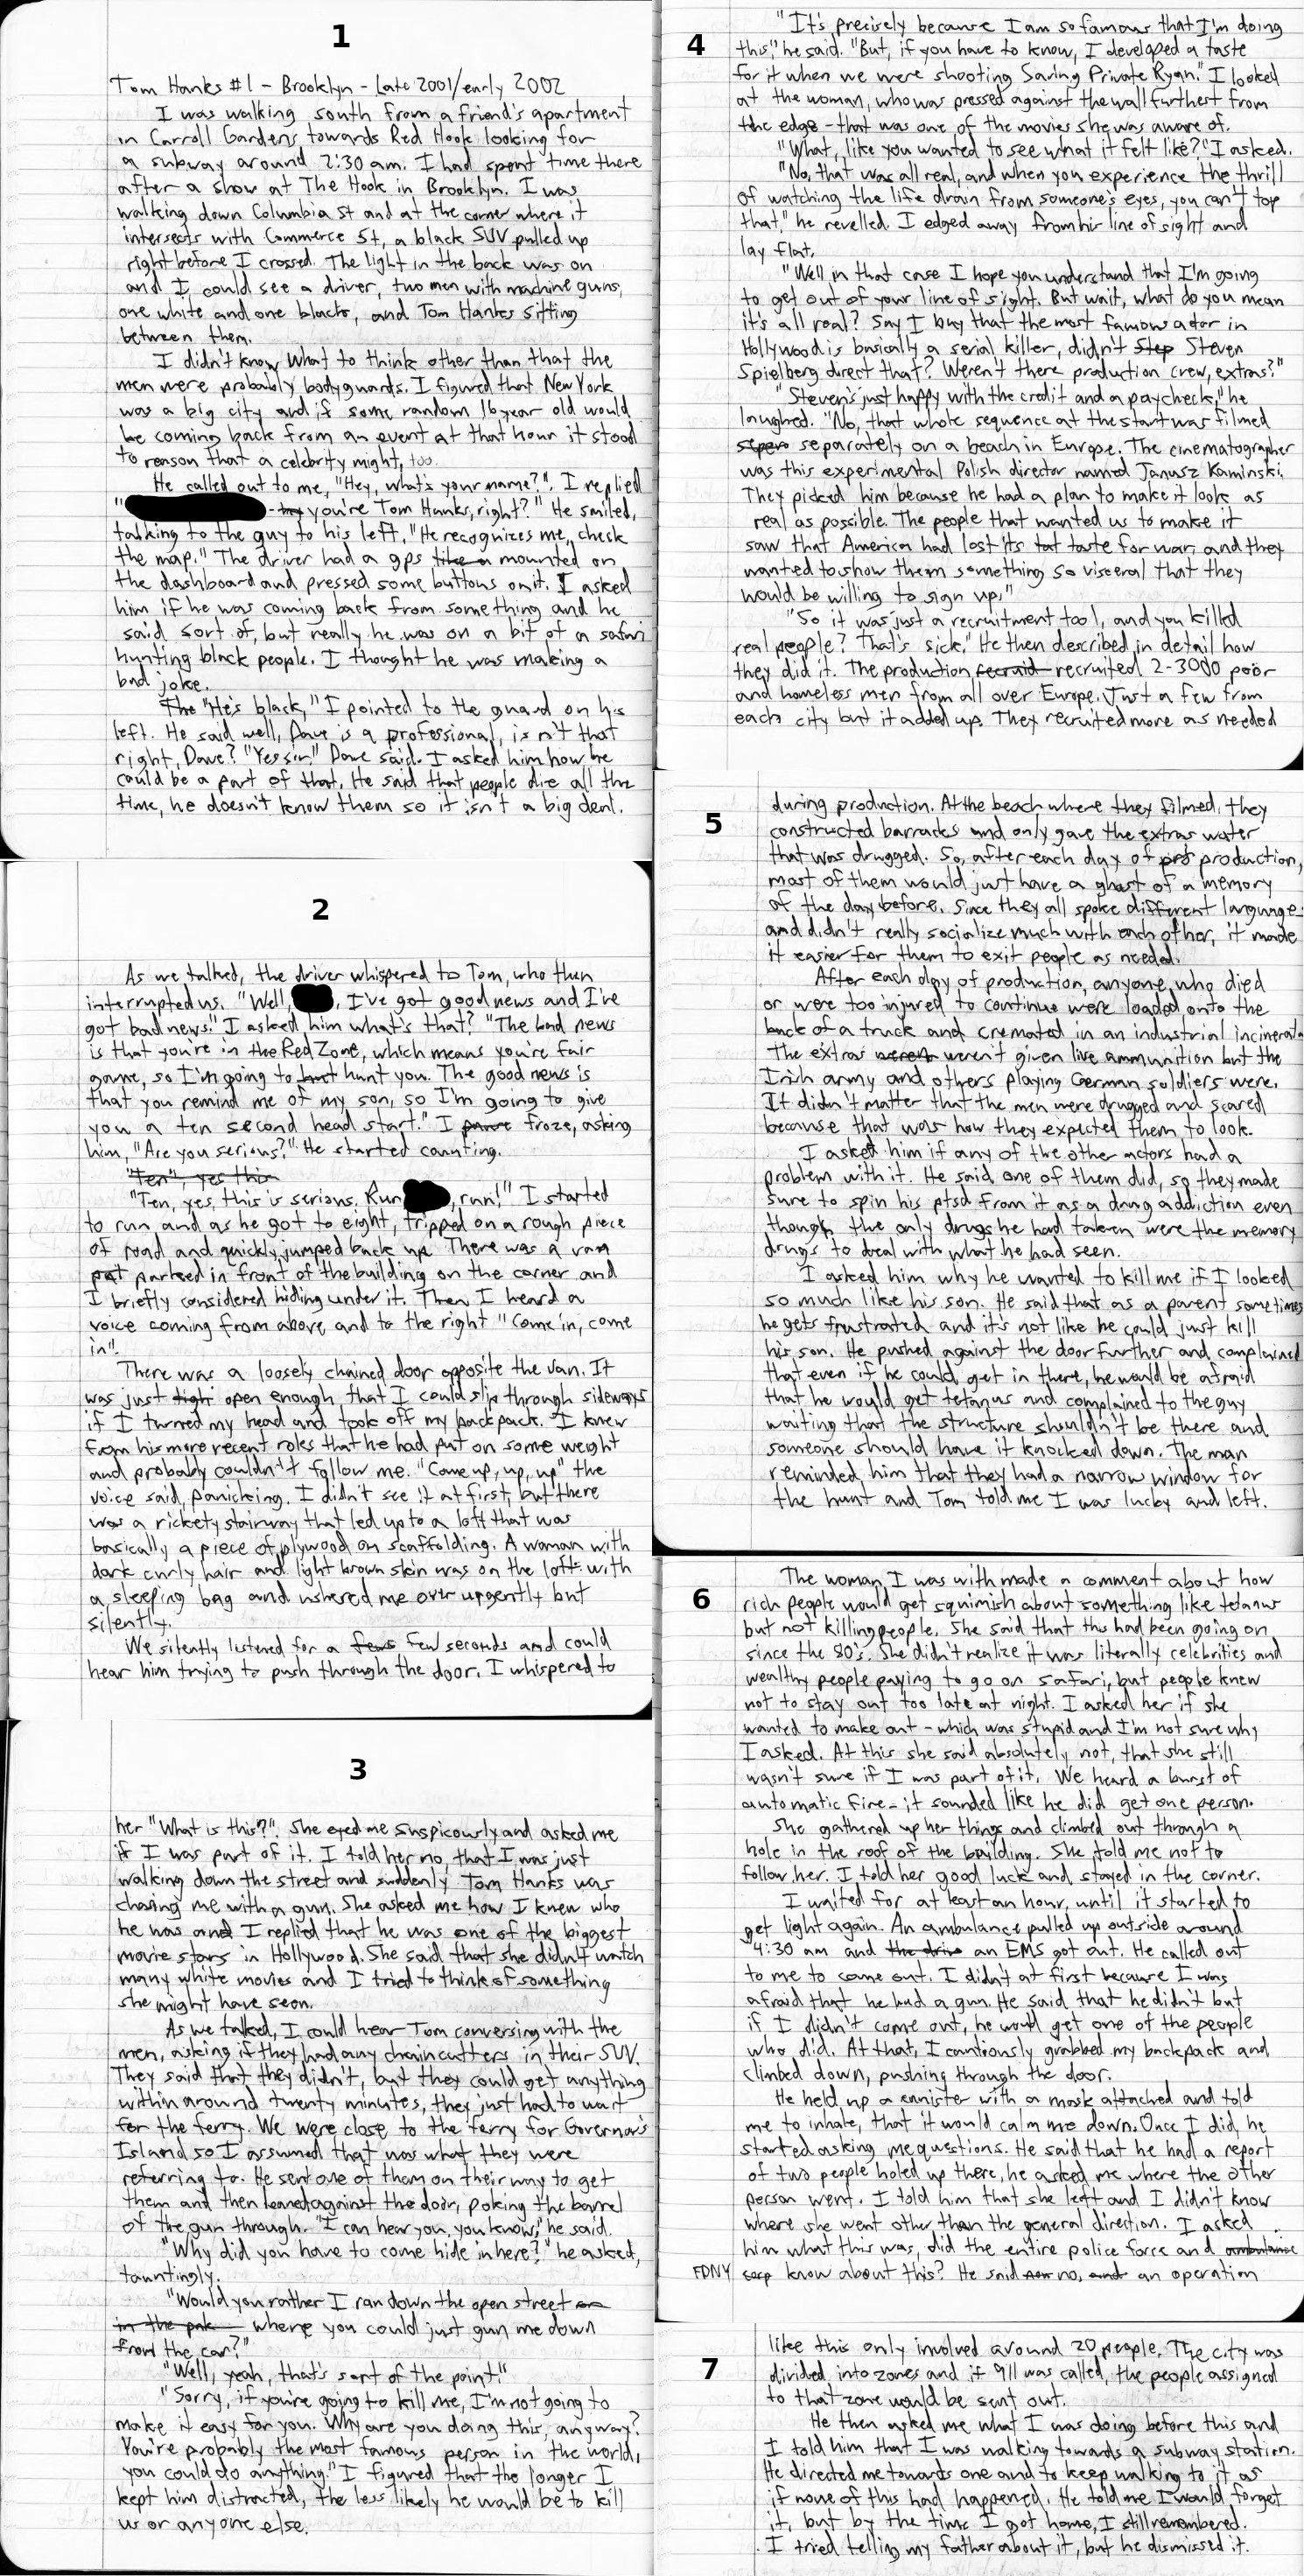 1
Tom Hanks #1 - Brooklyn - Late 2001/early 2002
I was walking south from a friend's apartment
in Carroll Gardens towards Red Hook looking for
a subway around 2:30 am. I had spent time there
after a show at The Hook in Brooklyn. I was
walking down Columbia St and at the corner where it
intersects with Commerce St, a black SUV pulled up
right before I crossed. The light in the back was on
and I could see a driver, two men with machine guns,
one white and one black, and Tom Hanks sitting
between them.
I didn't know what to think other than that the
men were probably bodyguards. I figured that New York
was a big city and if some random 16 year old would
be coming back from an event at that hour it stood
to reason that a celebrity might, too.
He called out to me, "Hey, what's your name?". I replied
" - hey you're Tom Hanks, right?" He smiled,
talking to the guy to his left, "He recognizes me, check
the map." The driver had a gps like a mounted on
the dashboard and pressed some buttons on it. I asked
him if he was coming back from something and he
said sort of, but really he was on a bit of a safari
hunting black people. I thought he was making a
bad joke.
The "He's black," I pointed to the guard on his
left. He said well, Dave is a professional, isn't that
right, Dave? "Yes sir" Dave said. I asked him how he
could be a part of that. He said that people die all the
time, he doesn't know them so it isn't a big deal.
2
As we talked, the driver whispered to Tom, who then
interrupted us. "Well, , I've got good news and I've
got bad news." I asked him what's that? "The bad news
is that you're in the Red Zone, which means you're fair
game, so I'm going to hunt hunt you. The good news is
that you remind me of my son, so I'm going to give
you a ten second head start." I froze, asking
him, "Are you serious?" He started counting.
"Ten", yes this
"Ten, yes, this is serious. Run , run!" I started
to run and as he got to eight, tripped on a rough piece
of road and quickly jumped back up. There was a van
parked in front of the building on the corner and
I briefly considered hiding under it. Then I heard a
voice coming from above and to the right "Come in, come
in".
There was a loosely chained door opposite the van. It
was just open enough that I could slip through sideways
if I turned my head and took off my backpack. I knew
from his more recent roles that he had put on some weight
and probably couldn't follow me. "Come up, up, up" the
voice said, panicking. I didn't see it at first, but there
was a rickety stairway that led up to a loft that was
basically a piece of plywood on scaffolding. A woman with
dark curly hair and light brown skin was on the loft with
a sleeping bag and ushered me over urgently but
silently.
We silently listened for a few few seconds and could
hear him trying to push through the door. I whispered to
3
her "What is this?". She eyed me suspicourly and asked me
if I was part of it. I told her no, that I was just
walking down the street and suddenly Tom Hanks was
chasing me with a gun. She asked me how I knew who
he was and I replied that he was one of the biggest
movie stars in Hollywood. She said that she didn't watch
many white movies and I tried to think of something
she might have seen.
As we talked, I could hear Tom conversing with the
men, asking if they had any chain cutters in their SUV.
They said that they didn't, but they could get anything
within around twenty minutes, they just had to wait
for the ferry. We were close to the ferry for Governor's
Island so I assumed that was what they were
referring to. He sent one of them on their way to get
them and then leaned against the door, poking the barrel
of the gun through. "I can hear you, you know," he said.
"Why did you have to come hide in here?" he asked,
tauntingly.
"Would you rather I ran down the open street
in the where you could just gun me down
from the car?"
"Well, yeah, that's sort of the point."
"Sorry, if you're going to kill me, I'm not going to
make it easy for you. Why are you doing this, anyway?
You're probably the most famous person in the world,
you could do anything." I figured that the longer I
kept him distracted, the less likely he would be to kill
us or anyone else.
4
"It's precisely because I am so famous that I'm doing
this," he said. "But, if you have to know, I developed a taste
for it when we were shooting Saving Private Ryan." I looked
at the woman, who was pressed against the wall furthest from
the edge - that was one of the movies she was aware of.
"What, like you wanted to see what it felt like?" I asked.
"No, that was all real, and when you experience the thrill
of watching the life drain from someone's eyes, you can't top
that," he revelled. I edged away from his line of sight and
lay flat.
"Well in that case I hope you understand that I'm going
to get out of your line of sight. But wait, what do you mean
it's all real? Say I buy that the most famous actor in
Hollywood is basically a serial killer, didn't Step Steven
Spielberg direct that? Weren't there production crew, extras?"
"Steven's just happy with the credit and a paycheck," he
laughed. "No, that whole sequence at the start was filmed
separately on a beach in Europe. The cinematographer
was this experimental Polish director named Janusz Kaminski.
They picked him because he had a plan to make it look as
real as possible. The people that wanted us to make it
saw that America had lost its tat taste for war, and they
wanted to show them something so visceral that they
would be willing to sign up."
"So it was just a recruitment tool, and you killed
real people? That's sick." He then described in detail how
they did it. The production recruited 2-3000 poor
and homeless men from all over Europe. Just a few from
each city but it added up. They recruited more as needed
5
during production. At the beach where they filmed, they
constructed barracks and only gave the extras water
that was drugged. So, after each day of production,
most of them would just have a ghost of a memory
of the day before. Since they all spoke different language
and didn't really socialize much with each other, it made
it easier for them to exit people as needed.
After each day of production, anyone who died
or were too injured to continue were loaded onto the
back of a truck and cremated in an industrial incinerat
The extras weren't given live ammunition but the
Irish army and others playing German soldiers were.
It didn't matter that the men were drugged and scared
because that was how they expected them to look.
I asked him if any of the other actors had a
problem with it. He said one of them did, so they made
sure to spin his ptsd from it as a drug addiction even
though the only drugs he had taken were the memory
drugs to deal with what he had seen.
I asked him why he wanted to kill me if I looked
so much like his son. He said that as a parent sometimes
he gets frustrated and it's not like he could just kill
his son. He pushed against the door further and complained
that even if he could get in there, he would be afraid
that he would get tetanus and complained to the guy
waiting that the structure shouldn't be there and
someone should have it knocked down. The man
reminded him that they had a narrow window for
the hunt and Tom told me I was lucky and left.
6
The woman I was with made a comment about how
rich people would get squimish about something like tetanus
but not killing people. She said that this had been going on
since the 80's. She didn't realize it was literally celebrities and
wealthy people paying to go on safari, but people knew
not to stay out too late at night. I asked her if she
wanted to make out - which was stupid and I'm not sure why
I asked. At this she said absolutely not, that she still
wasn't sure if I was part of it. We heard a burst of
automatic fire - it sounded like he did get one person.
She gathered up her things and climbed out through a
hole in the roof of the building. She told me not to
follow her. I told her good luck and stayed in the corner.
I waited for at least an hour, until it started to
get light again. An ambulance pulled up outside around
4:30 am and the drive an EMS got out. He called out
to me to come out. I didn't at first because I was
afraid that he had a gun. He said that he didn't but
if I didn't come out, he would get one of the people
who did. At that, I cautiously grabbed my backpack and
climbed down, pushing through the door.
He held up a cannister with a mask attached and told
me to inhale, that it would calm me down. Once I did, he
started asking me questions. He said that he had a report
of two people holed up there, he asked me where the other
person went. I told him that she left and I didn't know
where she went other than the general direction. I asked
him what this was, did the entire police force and ambulance
FDNY corp know about this? He said no, and an operation
7
like this only involved around 20 people. The city was
divided into zones and if 911 was called, the people assigned
to that zone would be sent out.
He then asked me what I was doing before this and
I told him that I was walking towards a subway station.
He directed me towards one and to keep walking to it as
if none of this had happened. He told me I would forget
it, but by the time I got home, I still remembered.
I tried telling my father about it, but he dismissed it.